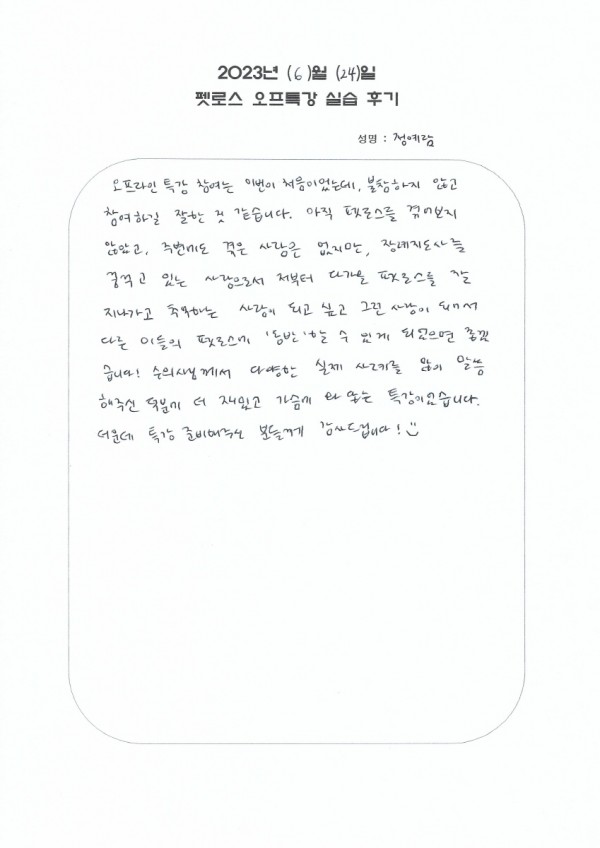 2023년 (6)월 (24)일
펫로스 오프특강 실습 후기
성명 : 정예람
오프라인 특강 참여는 이번이 처음이었는데, 불참하지 않고
참여하길 잘한 것 같습니다. 아직 펫로스를 겪어보지
않았고, 주변에도 겪은 사람은 없지만, 장례지도사를
꿈꾸고 있는 사람으로서 저부터 다가올 펫로스를 잘
지나가고 추억하는 사람이 되고 싶고 그런 사람이 되어서
다른 이들의 펫로스에 '동반'할 수 있게 되었으면 좋겠
습니다! 수의사님께서 다양한 실제 사례를 많이 말씀
해주신 덕분에 더 재밌고 가슴에 와 닿는 특강이었습니다.
더운데 특강 준비해주신 분들께 감사드립니다!